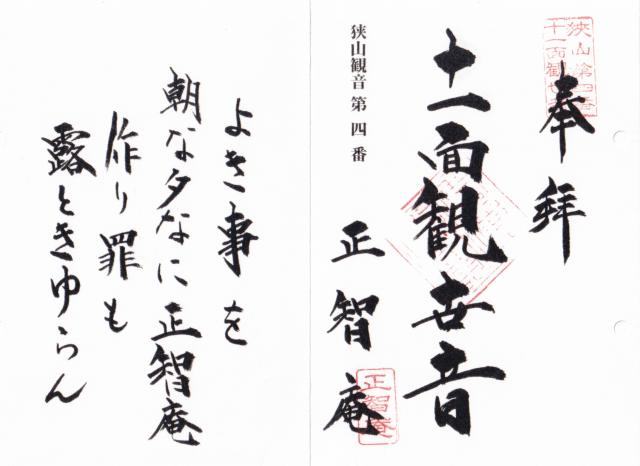 狭山第四番
十一面観世音
奉拝
十一面観世音
狭山観音第四番
正智庵
正智庵
よき事を
朝な夕なに正智庵
作り罪も
露ときゆらん